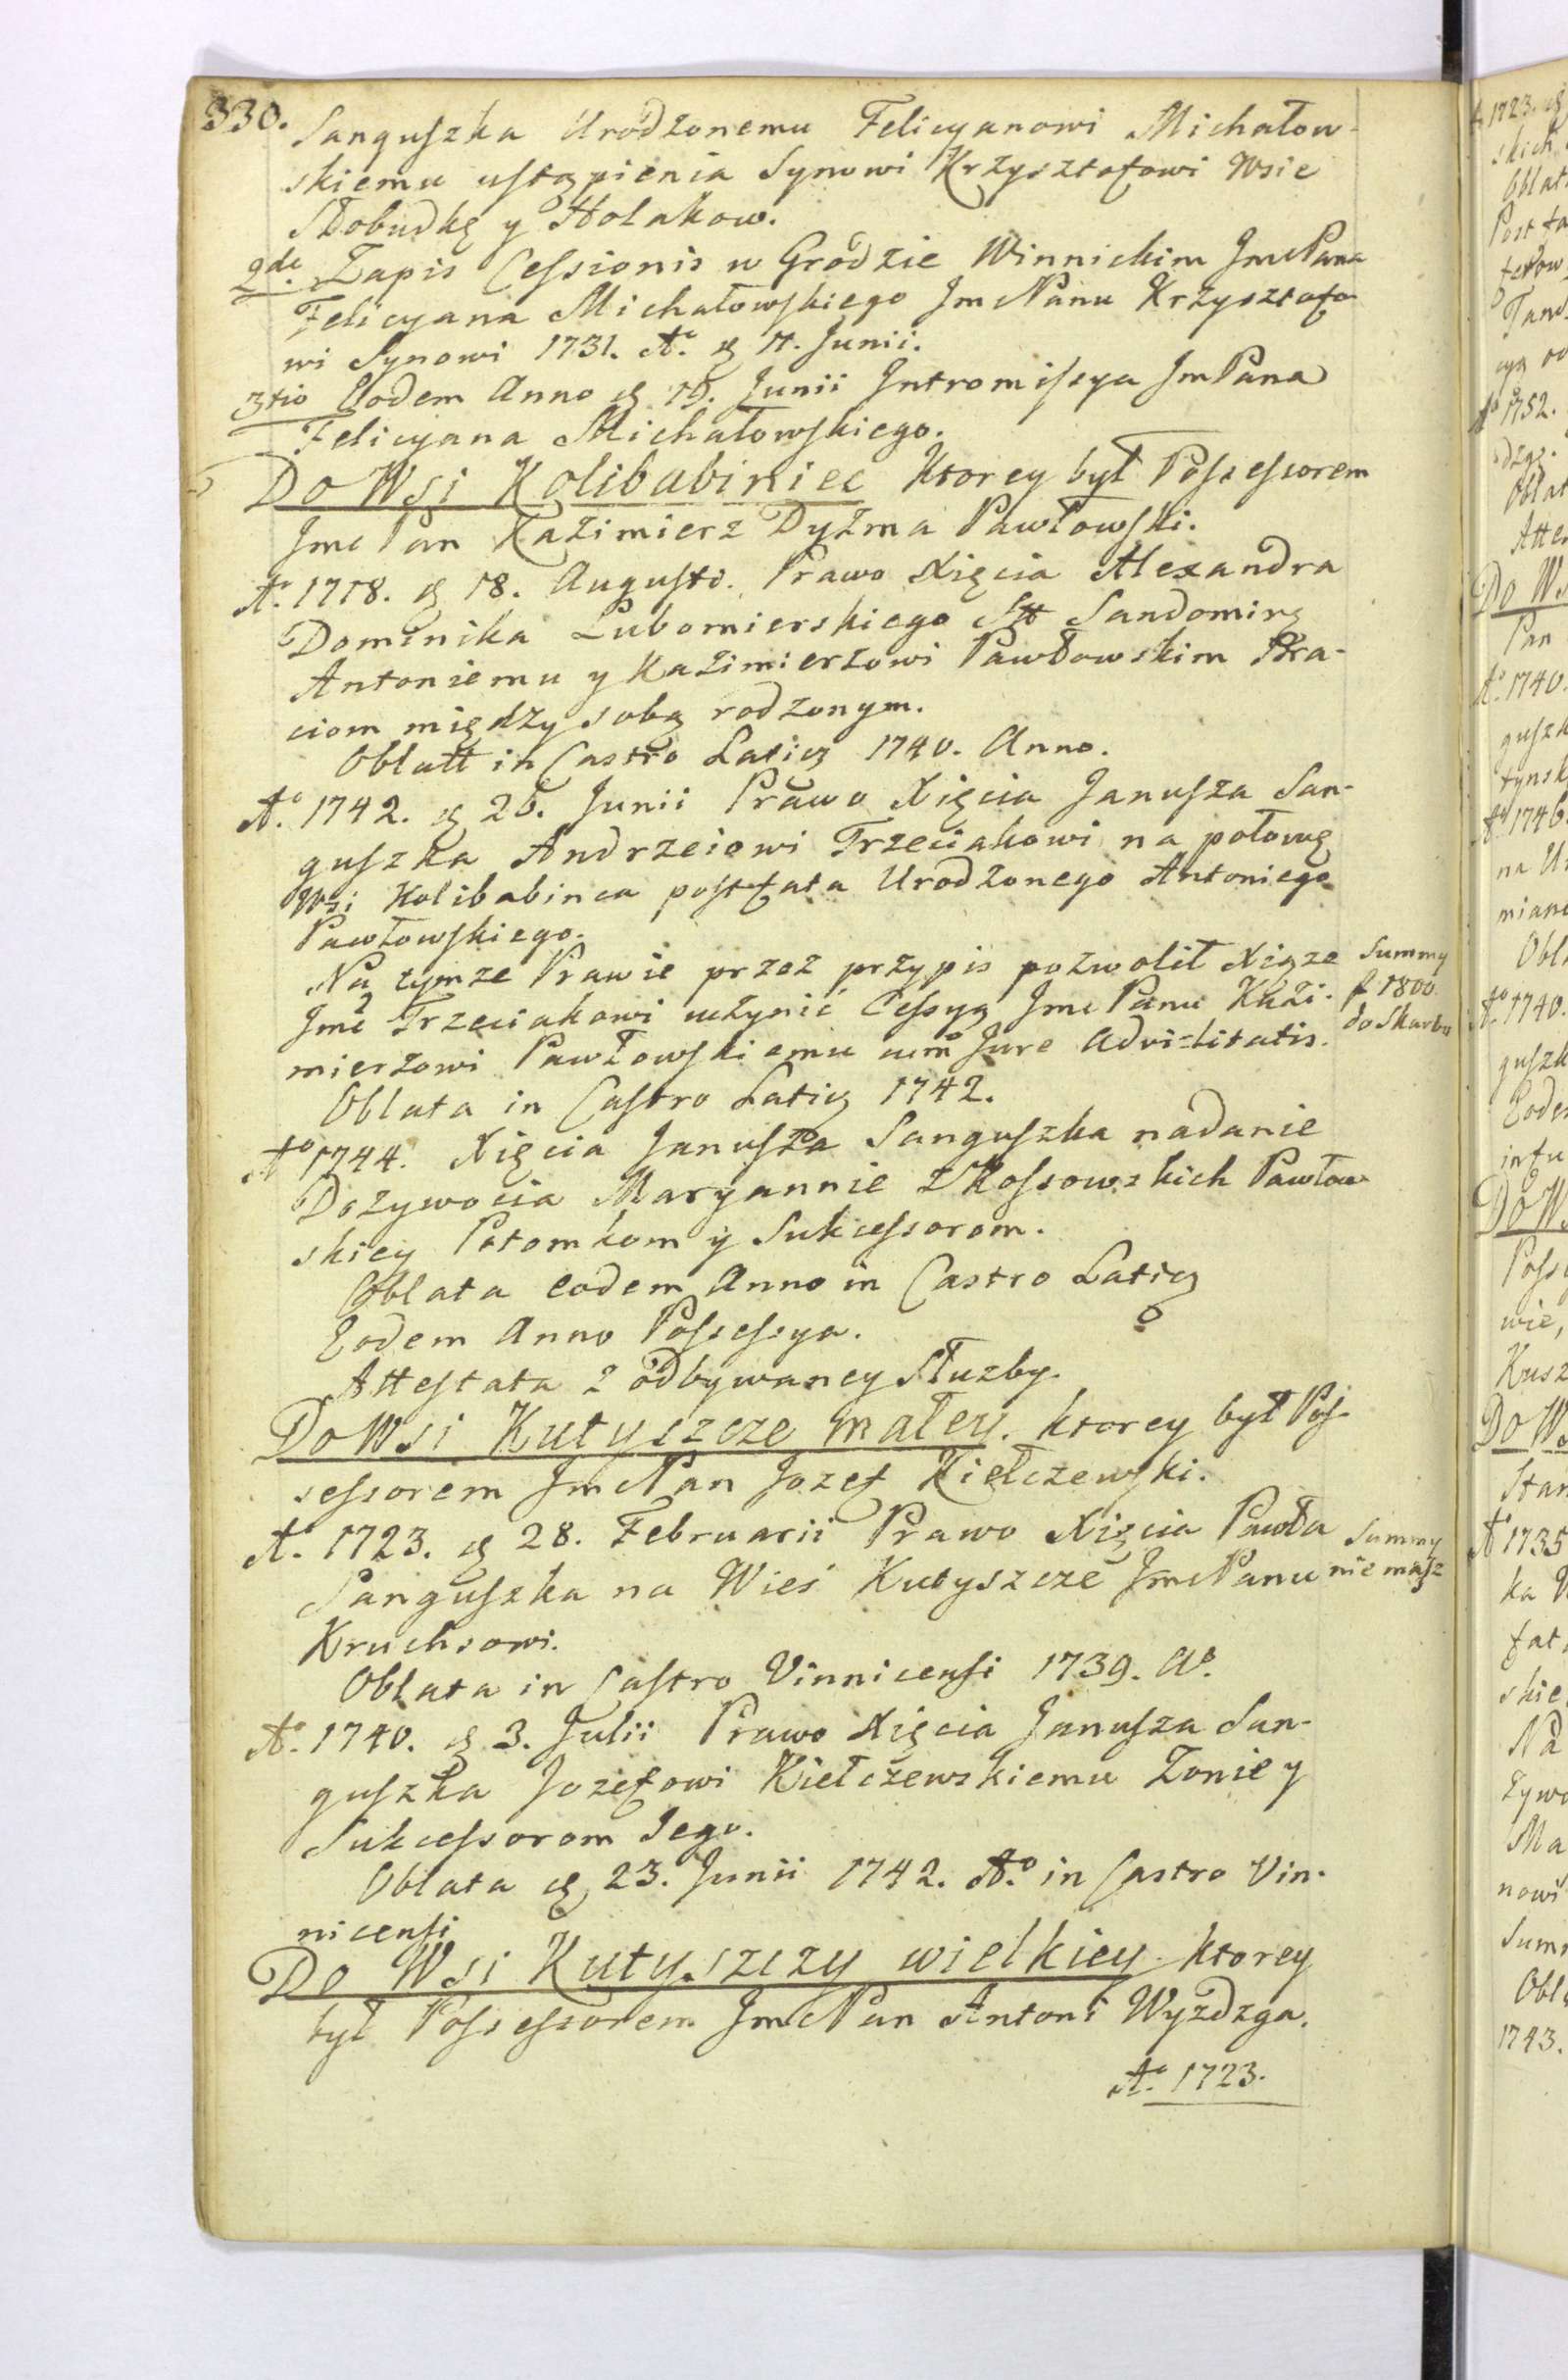 330.
Sanguszka Urodzonemu Felicyanowi Michałow-
skiemu ustąpienia Synowi Krzysztofowi Wsie
Słobudkę y Holakow.
2do. Zapis Cessionis w Grodzie Winnickim Jmc Pana
Felicyana Michałowskiego Jmc Panu Krzysztofo
wi Synowi 1731. Ao. d 11. Junii.
3tio Eodem Anno d 19. Junii Intromissya Jm Pana
Felicyana Michałowskiego.
Do Wsi Kolibabiniec ktorey był Possessorem
Jmc Pan Kazimierz Dyzma Pawłowski.
Ao. 1718. d 18. Augusto. Prawo Xięcia Alexandra
Dominika Lubomierskiego Stt Sandomirz
Antoniemu y Kazimierzowi Pawłowskim Bra-
ciom między sobą rodzonym.
Oblatt in Castro Laticz 1740. Anno.
Ao. 1742. d 26. Junii Prawo Xięcia Janusza San-
guszka Andrzeiowi Trzeciakowi na połowę
Wsi Kolibabinca post fata Urodzonego Antoniego
Pawłowskiego.
Na tymze Prawie przez przypis pozwolił Xiąze
Jmć Trzeciakowi uczynić Cessyą Jmc Panu Kazi-
mierzowi Pawłowskiemu cum Jure Advitalitatis.
Summy
f 1800
do Skarbu
Oblata in Castro Laticz 1742.
Ao 1744. Xięcia Janusza Sanguszka nadanie
Dozywocia Maryannie z Kossowskich Pawłow
skiey Potomkom y Sukcessorom.
Oblata eodem Anno in Castro Laticz
Eodem Anno Possessya.
Attestata z odbywaney Służby.
Do Wsi Kutyszcze małey. ktorey był Pos-
sessorem Jmc Pan Jozef Kiełczewski.
Ao. 1723. d 28. Februarii Prawo Xięcia Pawła
Sanguszka na Wieś Kutyszcze Jmc Panu
Kruchsowi.
Summy
nie masz
Oblata in Castro Vinnicensi 1739. Ao.
Ao. 1740. d 3. Julii Prawo Xięcia Janusza San-
guszka Jozefowi Kiełczewskiemu Zonie y
Sukcessorom Jego.
Oblata d 23. Junii 1742. Ao. in Castro Vin-
nicensi
Do Wsi Kutyszczy wielkiey ktorey
był Possessorem Jmc Pan Antoni Wyzdzga.
Ao. 1723.